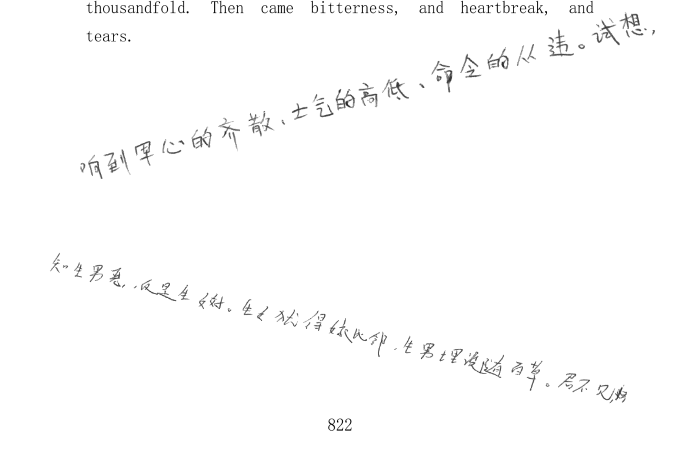 thousandfold. Then came bitterness, and heartbreak, and
tears.
响到军心的齐散、士气的高低、命令的从违。试想,
知生男恶,反是生女好。生女犹得嫁比邻,生男埋没随百草。君不见
822